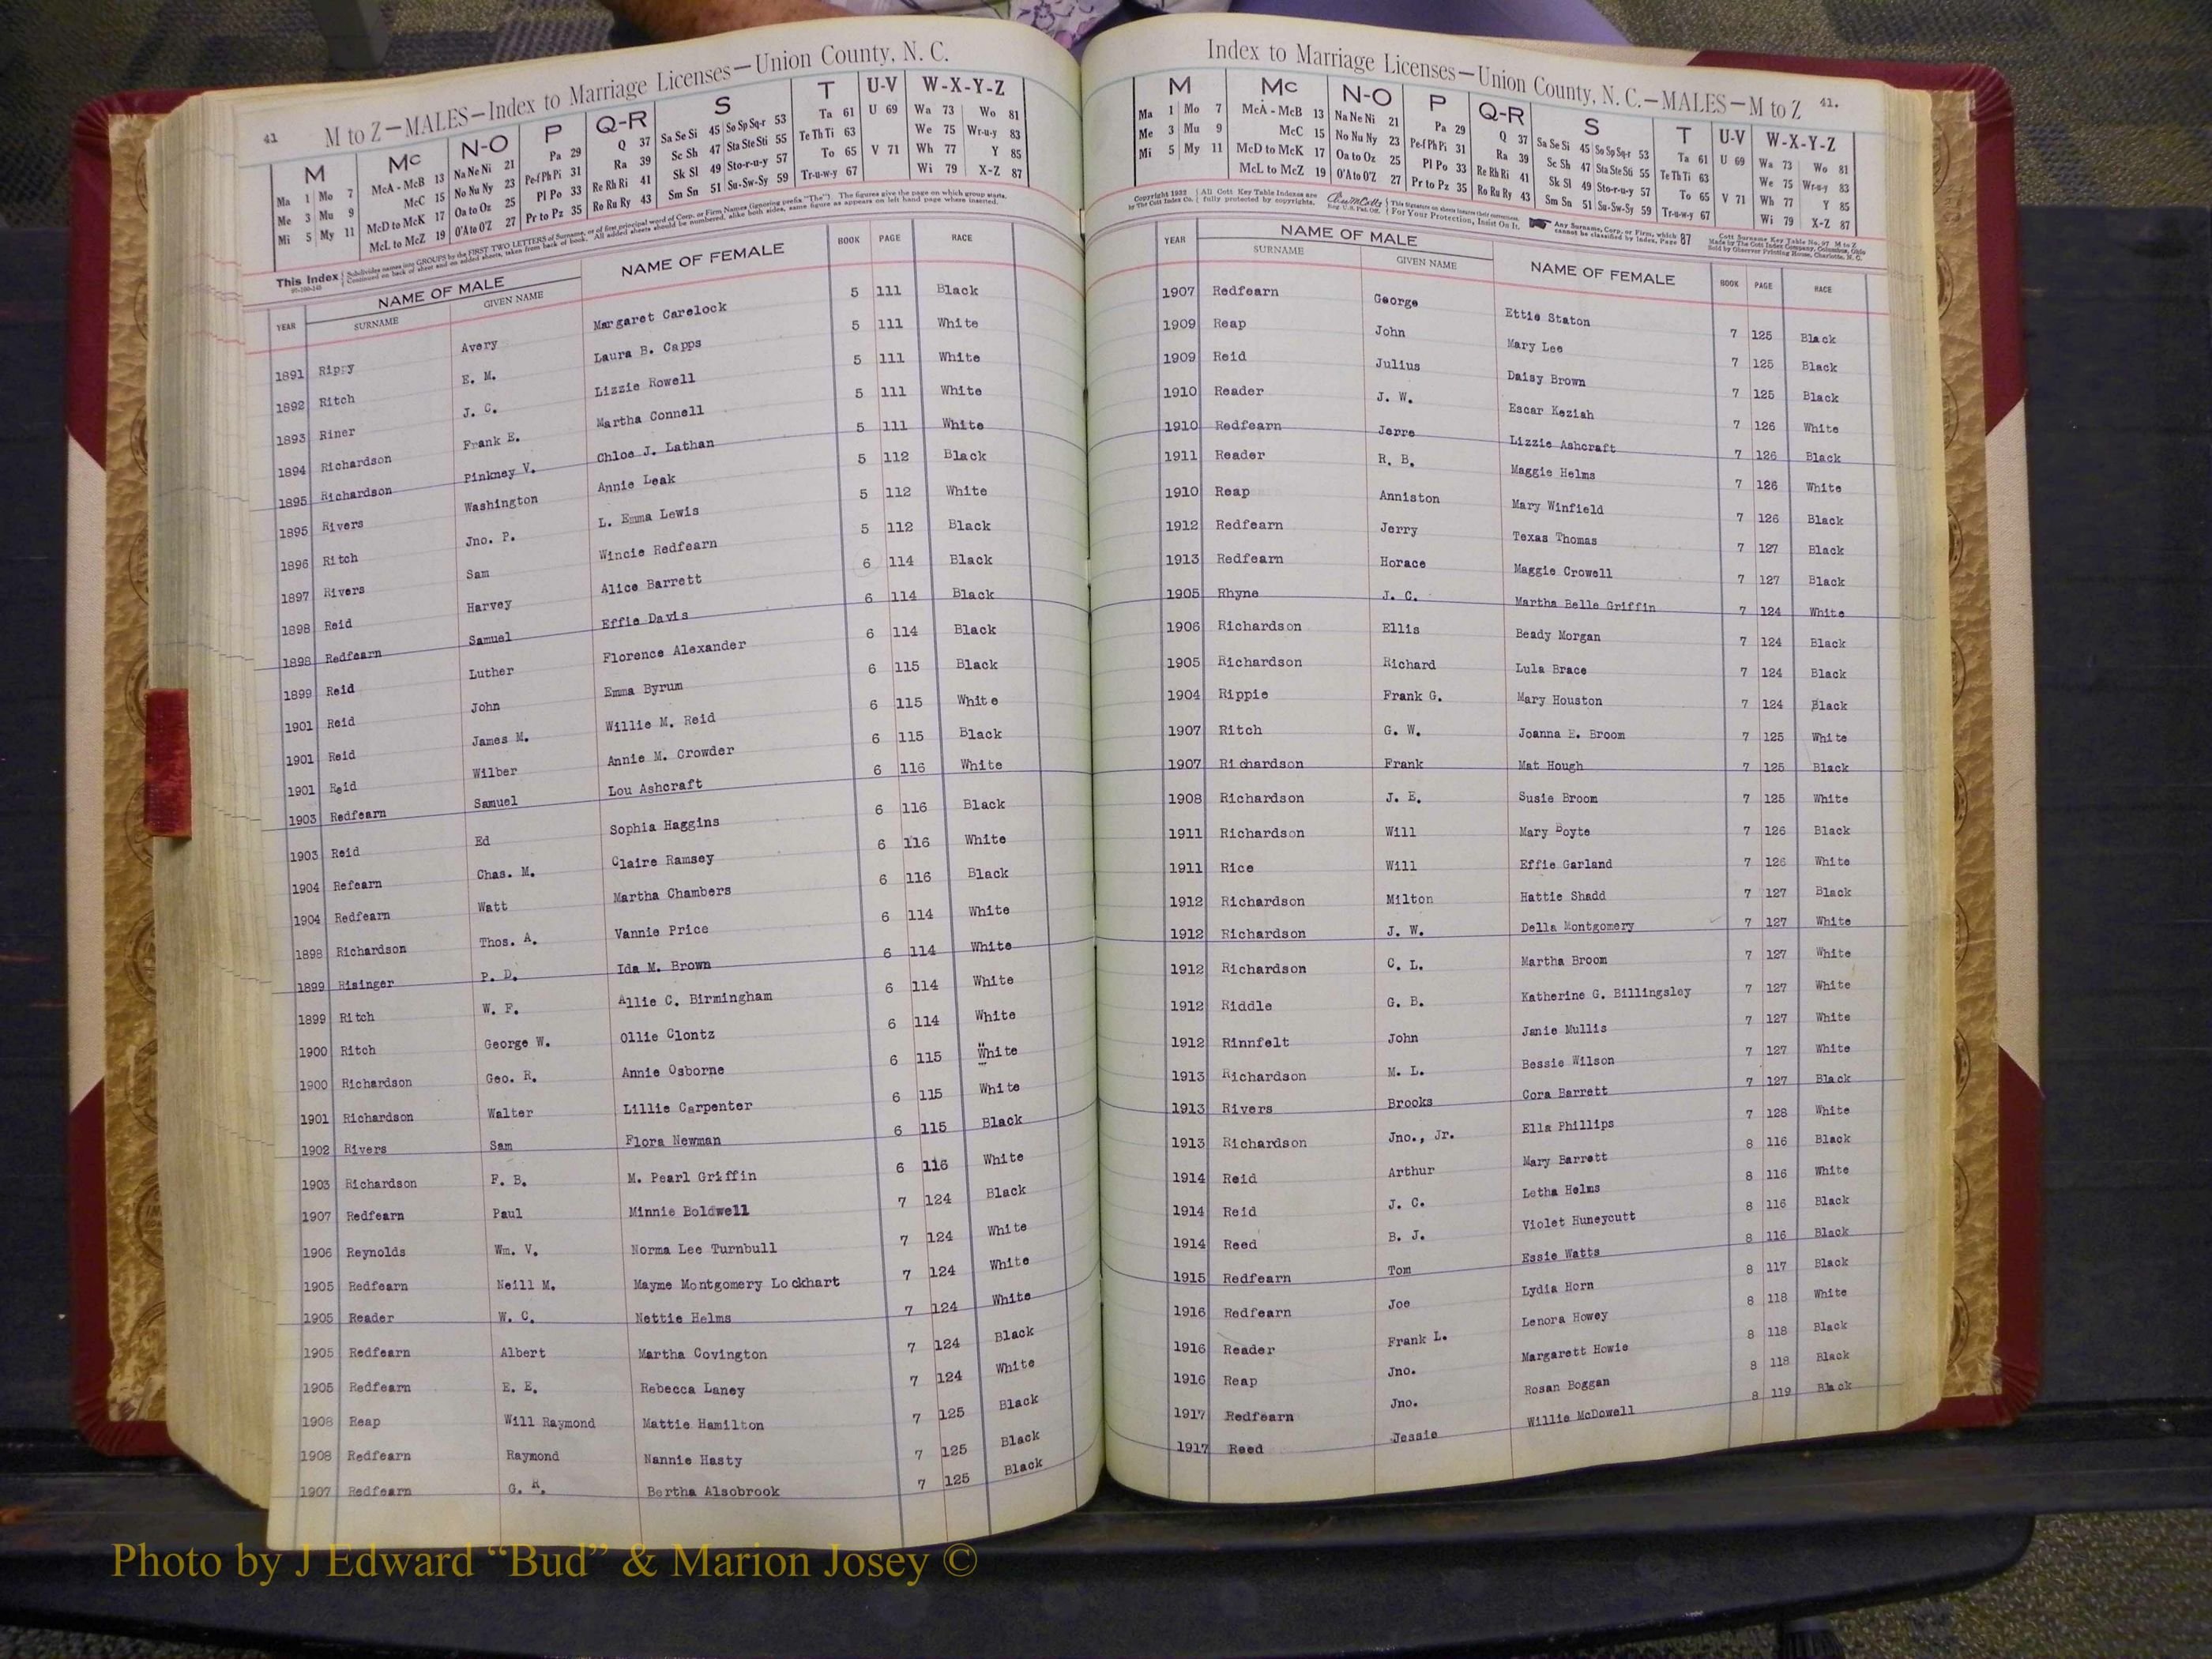 41 M to Z—MALES—Index to Marriage Licenses—Union County, N. C.
M Mc N-O P Q-R S T U-V W-X-Y-Z
Ma 1 Mo 7 McA - McB 13 Na Ne Ni 21 Pa 29 Q 37 Sa Se Si 45 So Sp Sq-r 53 Ta 61 U 69 Wa 73 Wo 81
Me 3 Mu 9 McC 15 No Nu Ny 23 Pe-f Ph Pi 31 Ra 39 Sc Sh 47 Sta Ste Sti 55 Te Th Ti 63 We 75 Wr-u-y 83
Mi 5 My 11 McD to McK 17 Oa to Oz 25 Pl Po 33 Re Rh Ri 41 Sk Sl 49 Sto-r-u-y 57 To 65 V 71 Wh 77 Y 85
McL to McZ 19 O'A to O'Z 27 Pr to Pz 35 Ro Ru Ry 43 Sm Sn 51 Su-Sw-Sy 59 Tr-u-w-y 67 Wi 79 X-Z 87
This Index Subdivides names into GROUPS by the FIRST TWO LETTERS of Surname, or of first principal word of Corp. or Firm Names (ignoring prefix "The"). The figures give the page on which group starts.
Continued on back of sheet and on added sheets, taken from back of book. All added sheets should be numbered, alike both sides, same figure as appears on left hand page where inserted.
YEAR NAME OF MALE NAME OF FEMALE BOOK PAGE RACE
SURNAME GIVEN NAME
1891 Rippy Avery Margaret Carelock 5 111 Black
1892 Ritch E. M. Laura B. Capps 5 111 White
1893 Riner J. C. Lizzie Rowell 5 111 White
1894 Richardson Frank E. Martha Connell 5 111 White
1895 Richardson Pinkney V. Chloe J. Lathan 5 111 White
1895 Rivers Washington Annie Leak 5 112 Black
1896 Ritch Jno. P. L. Emma Lewis 5 112 White
1897 Rivers Sam Wincie Redfearn 5 112 Black
1898 Reid Harvey Alice Barrett 6 114 Black
1898 Redfearn Samuel Effie Davis 6 114 Black
1899 Reid Luther Florence Alexander 6 114 Black
1901 Reid John Emma Byrum 6 115 Black
1901 Reid James M. Willie M. Reid 6 115 White
1901 Reid Wilber Annie M. Crowder 6 115 Black
1903 Redfearn Samuel Lou Ashcraft 6 116 White
1903 Reid Ed Sophia Haggins 6 116 Black
1904 Refearn Chas. M. Claire Ramsey 6 116 White
1904 Redfearn Watt Martha Chambers 6 116 Black
1898 Richardson Thos. A. Vannie Price 6 114 White
1899 Risinger P. D. Ida M. Brown 6 114 White
1899 Ritch W. F. Allie C. Birmingham 6 114 White
1900 Ritch George W. Ollie Clontz 6 114 White
1900 Richardson Geo. R. Annie Osborne 6 115 White
1901 Richardson Walter Lillie Carpenter 6 115 White
1902 Rivers Sam Flora Newman 6 115 Black
1903 Richardson F. B. M. Pearl Griffin 6 116 White
1907 Redfearn Paul Minnie Boldwell 7 124 Black
1906 Reynolds Wm. V. Norma Lee Turnbull 7 124 White
1905 Redfearn Neill M. Mayme Montgomery Lockhart 7 124 White
1905 Reader W. C. Nettie Helms 7 124 White
1905 Redfearn Albert Martha Covington 7 124 Black
1905 Redfearn E. E. Rebecca Laney 7 124 White
1908 Reap Will Raymond Mattie Hamilton 7 125 Black
1908 Redfearn Raymond Nannie Hasty 7 125 Black
1907 Redfearn G. R. Bertha Alsobrook 7 125 Black
Index to Marriage Licenses—Union County, N. C.—MALES—M to Z 41.
M Mc N-O P Q-R S T U-V W-X-Y-Z
Ma 1 Mo 7 McA - McB 13 Na Ne Ni 21 Pa 29 Q 37 Sa Se Si 45 So Sp Sq-r 53 Ta 61 U 69 Wa 73 Wo 81
Me 3 Mu 9 McC 15 No Nu Ny 23 Pe-f Ph Pi 31 Ra 39 Sc Sh 47 Sta Ste Sti 55 Te Th Ti 63 We 75 Wr-u-y 83
Mi 5 My 11 McD to McK 17 Oa to Oz 25 Pl Po 33 Re Rh Ri 41 Sk Sl 49 Sto-r-u-y 57 To 65 V 71 Wh 77 Y 85
McL to McZ 19 O'A to O'Z 27 Pr to Pz 35 Ro Ru Ry 43 Sm Sn 51 Su-Sw-Sy 59 Tr-u-w-y 67 Wi 79 X-Z 87
Copyright 1932 by The Cott Index Co. All Cott Key Table Indexes are fully protected by copyrights. Reg. U.S. Pat. Off. This Signature on sheets insures their correctness. For Your Protection, Insist On It. Any Surname, Corp. or Firm, which cannot be classified by Index, Page 87
Cott Surname Key Table No. 97 M to Z Made by The Cott Index Company, Columbus, Ohio Sold by Observer Printing House, Charlotte, N. C.
YEAR NAME OF MALE NAME OF FEMALE BOOK PAGE RACE
SURNAME GIVEN NAME
1907 Redfearn George Ettie Staton 7 125 Black
1909 Reap John Mary Lee 7 125 Black
1909 Reid Julius Daisy Brown 7 125 Black
1910 Reader J. W. Escar Keziah 7 126 White
1910 Redfearn Jerre Lizzie Ashcraft 7 126 Black
1911 Reader R. B. Maggie Helms 7 126 White
1910 Reap Anniston Mary Winfield 7 126 Black
1912 Redfearn Jerry Texas Thomas 7 127 Black
1913 Redfearn Horace Maggie Crowell 7 127 Black
1905 Rhyne J. C. Martha Belle Griffin 7 124 White
1906 Richardson Ellis Beady Morgan 7 124 Black
1905 Richardson Richard Lula Brace 7 124 Black
1904 Rippie Frank G. Mary Houston 7 124 Black
1907 Ritch G. W. Joanna E. Broom 7 125 White
1907 Richardson Frank Mat Hough 7 125 Black
1908 Richardson J. E. Susie Broom 7 125 White
1911 Richardson Will Mary Boyte 7 126 Black
1911 Rice Will Effie Garland 7 126 White
1912 Richardson Milton Hattie Shadd 7 127 Black
1912 Richardson J. W. Della Montgomery 7 127 White
1912 Richardson C. L. Martha Broom 7 127 White
1912 Riddle G. B. Katherine G. Billingsley 7 127 White
1912 Rinnfelt John Janie Mullis 7 127 White
1913 Richardson M. L. Bessie Wilson 7 127 White
1913 Rivers Brooks Cora Barrett 7 127 Black
1913 Richardson Jno., Jr. Ella Phillips 7 128 White
1914 Reid Arthur Mary Barrett 8 116 Black
1914 Reid J. C. Letha Helms 8 116 White
1914 Reed B. J. Violet Huneycutt 8 116 Black
1915 Redfearn Tom Essie Watts 8 116 Black
1916 Redfearn Joe Lydia Horn 8 117 Black
1916 Reader Frank L. Lenora Howey 8 118 White
1916 Reap Jno. Margarett Howie 8 118 Black
1917 Redfearn Jno. Rosan Boggan 8 118 Black
1917 Reed Jessie Willie McDowell 8 119 Black
Photo by J Edward “Bud” & Marion Josey ©